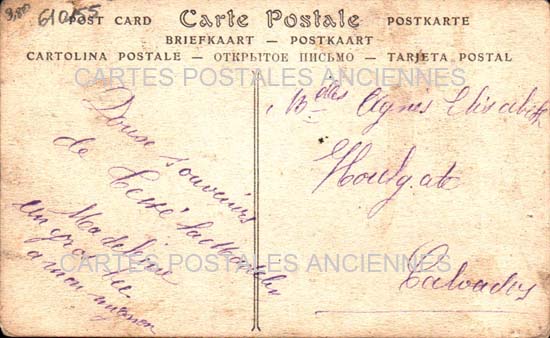 3,80
610/55
POST CARD Carte Postale POSTKARTE
BRIEFKAART — POSTKAART
CARTOLINA POSTALE — ОТКРЫТОЕ ПИСЬМО — TARJETA POSTAL
CARTES POSTALES ANCIENNES
Doux souvenirs
de
Madeleine
un gros
a mon mignon
Agnès Elisabeth
Houlgate
Calvados
CARTES POSTALES ANCIENNES